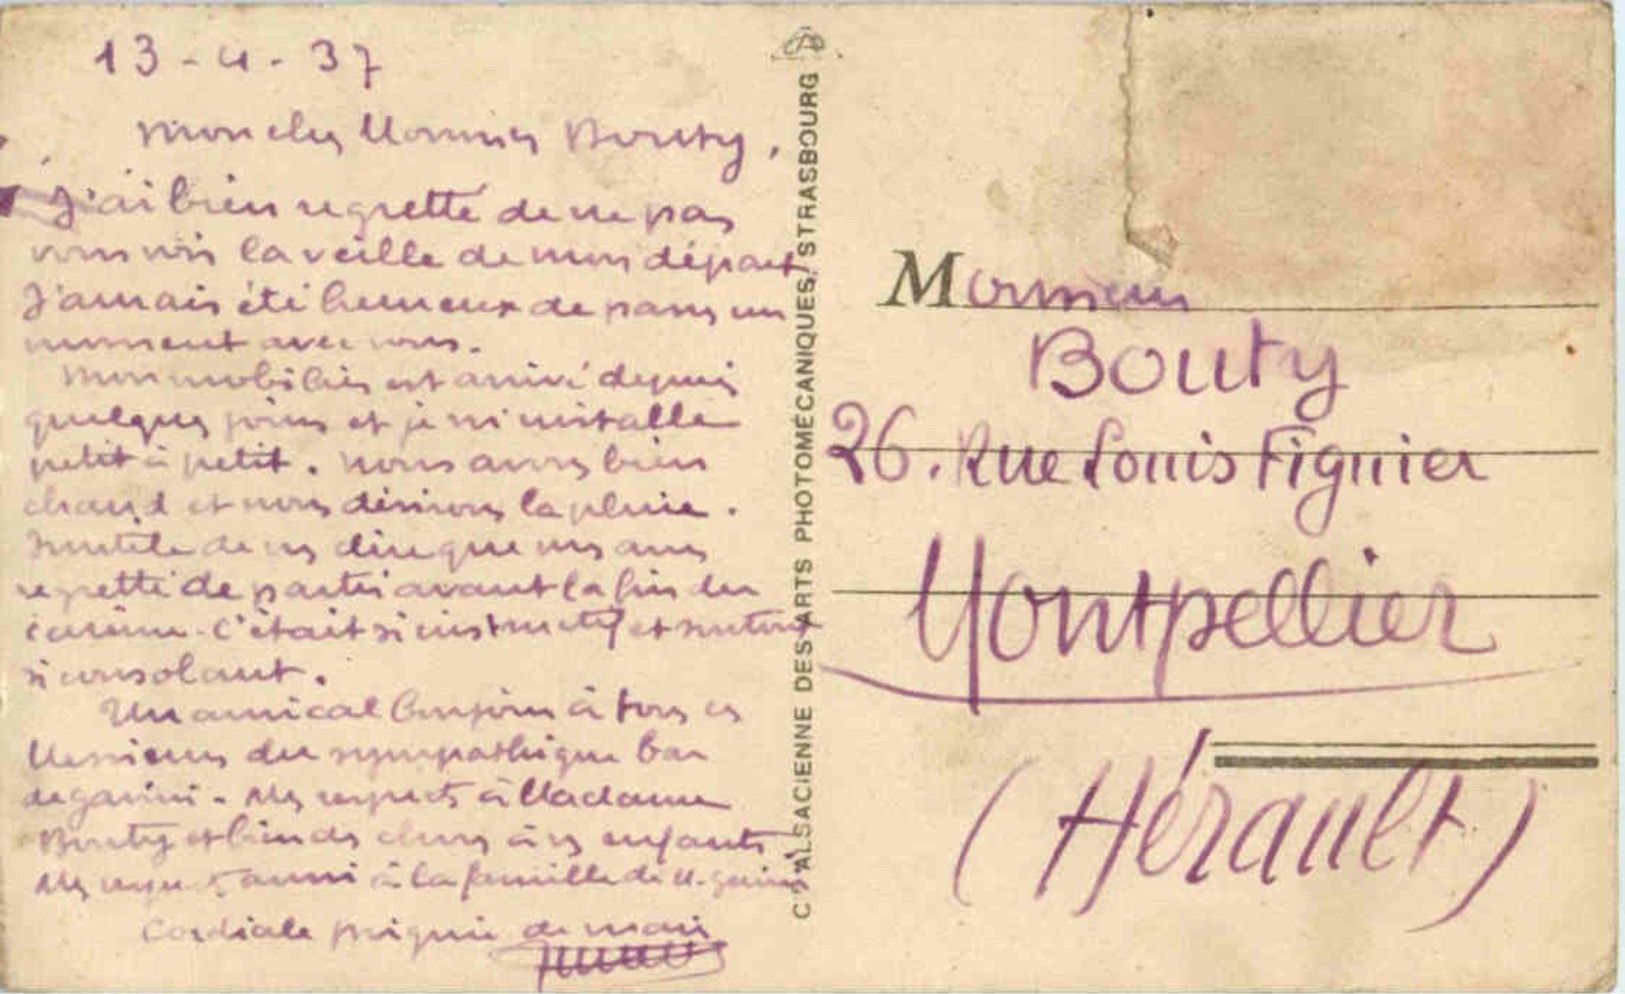 13-4-37
Mon cher Monsieur Bouty,
J'ai bien regretté de ne pas
vous voir la veille de mon départ
J'aurais été heureux de passer un
moment avec vous.
Mon mobilier est arrivé depuis
quelques jours et je m'installe
petit à petit. Nous avons bien
chaud et nous désirons la pluie.
Inutile de vs dire que ns avons
regretté de partir avant la fin du
carême. C'était si instructif et surtout
si consolant.
Un amical bonjour à tous ces
Messieurs du sympathique bar
. Mes respects à Madame
Bouty et bien des choses à vs enfants
Mes respects aussi à la famille de M.
Cordiale poignée de main
CIE ALSACIENNE DES ARTS PHOTOMÉCANIQUES, STRASBOURG
Monsieur
Bouty
26. Rue Louis Figuier
Montpellier
(Hérault)